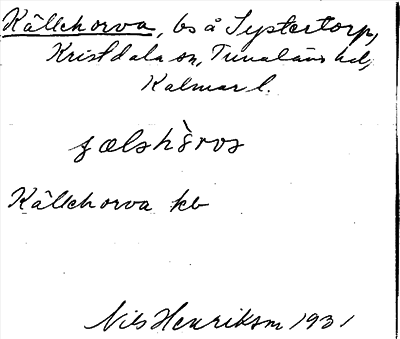 Källehorva, bs å Systertorp,
Kristdala sn, Tunaläns hd,
Kalmar l.
ɟælshɛ̀rvɑ
Källehorva kb
Nils Henrikson 1931